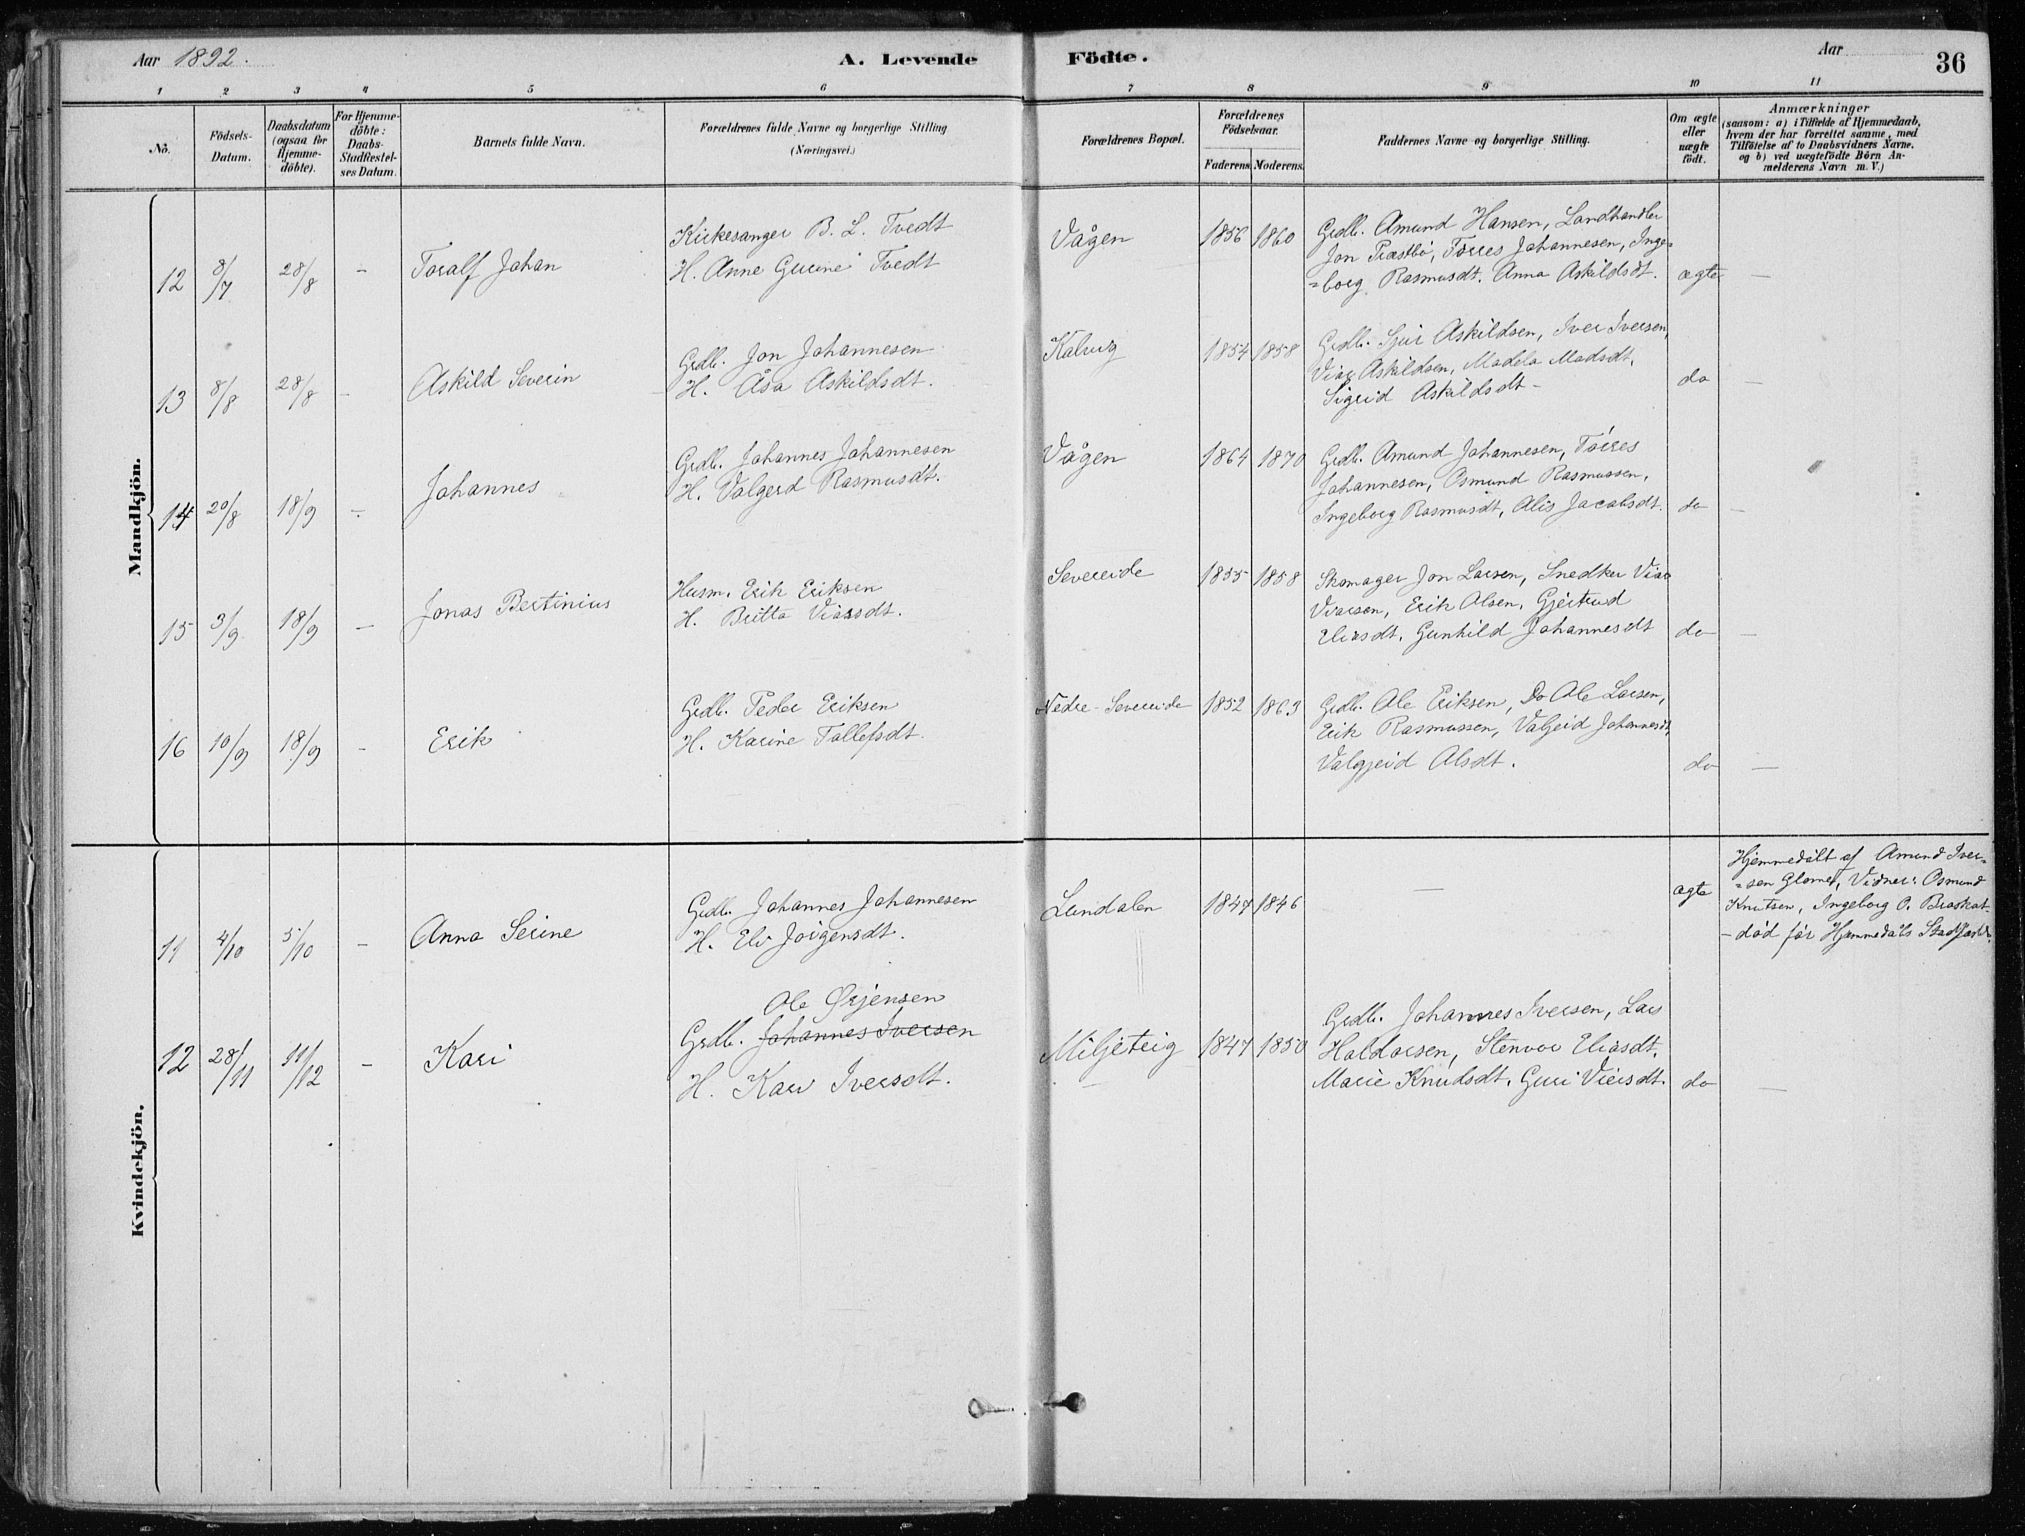 Aar 1892.
A. Levende Födte.
Aar
36
1 2 3 4 5 6 7 8 9 10 11
No.
Födsels-
Datum.
Daabsdatum
(ogsaa for
Hjemme-
döbte).
For Hjemme-
döbte:
Daabs-
Stadfæstel-
ses Datum.
Barnets fulde Navn.
Forældrenes fulde Navne og borgerlige Stilling
(Næringsvei.)
Forældrenes Bopæl.
Forældrenes
Födselsaar.
Faderens. Moderens.
Faddernes Navne og borgerlige Stilling.
Om ægte
eller
uægte
födt.
Anmærkninger
(saasom: a) i Tilfælde af Hjemmedaab,
hvem der har forrettet samme, med
Tilföielse af to Daabsvidners Navne.
og b) ved uægtefödte Börn An-
melderens Navn m. V.)
Mandkjön.
12 8/7 28/8 - Toralf Johan
Kirkesanger B. L. Tvedt
H. Anne Gurine Tvedt
Vågen 1856 1860
Grdb. Amund Hansen, Landhandler
Jon Træstbø, Tørres Johannesen, Inge-
=borg Rasmusdt. Anna Askildsdt.
ægte -
13 8/8 28/8 - Askild Severin
Grdb. Jon Johannesen
H. Åsa Askildsdt.
Kalvig 1854 1858
Grdb. Sjur Askildsen, Iver Iversen,
Viar Askildsen, Madela Madsdt.
Sigrid Askildsdt -
do -
14 20/8 18/9 - Johannes
Grdb. Johannes Johannesen
H. Valgerd Rasmusdt.
Vågen 1864 1870
Grdb. Amund Johannesen, Tørres
Johannesen, Osmund Rasmussen,
Ingeborg Rasmusdt, Alis Jacobsdt.
do -
15 3/9 18/9 - Jonas Bertinius
Husm. Erik Eriksen
H. Britta Viarsdt.
Severeide 1855 1858
Skomager Jon Larsen, Snedker Viar
Viarsen, Erik Olsen, Gjertrud
Eliasdt, Gunhild Johannesdt
do -
16 10/9 18/9 - Erik
Grdb. Peder Eriksen
H. Karine Tollefsdt.
Nedre-Severeide 1852 1863
Grdb. Ole Eriksen, Do Ole Larsen,
Erik Rasmussen, Valgjerd Johannesdt,
Valgjerd Olsdt.
do -
Kvindekjön.
11 4/10 5/10 - Anna Serine
Grdb. Johannes Johannesen
H. Eli Jørgensdt.
Lundalen 1847 1846
-
ægte
Hjemmedøbt af Amund Iver-
=sen Vidner: Osmund
Knutsen, Ingeborg O.
- død før Hjemmedåbs
12 28/11 11/12 - Kari
Ole Ørjensen
Grdb. Johannes Iversen
H. Kari Iversdt.
Miljeteig 1847 1850
Grdb. Johannes Iversen, Lars
Haldorsen, Stenvor Eliasdt.
Marie Knudsdt. Guri Viersdt.
do -